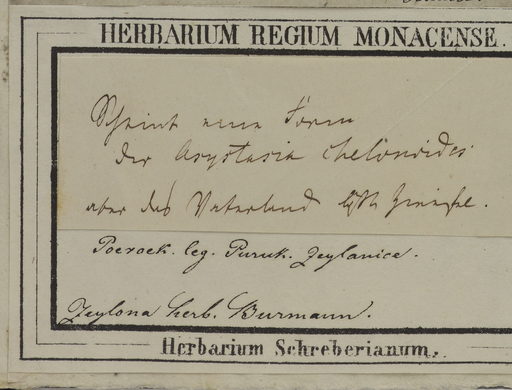 HERBARIUM REGIUM MONACENSE.
Scheint eine Form
der Asystasia chelonoides
aber das Vaterland läßt Zweifel.
Poerock. leg. Puruk. Zeylanice.
Zeylona herb. Burmann.
Herbarium Schreberianum.